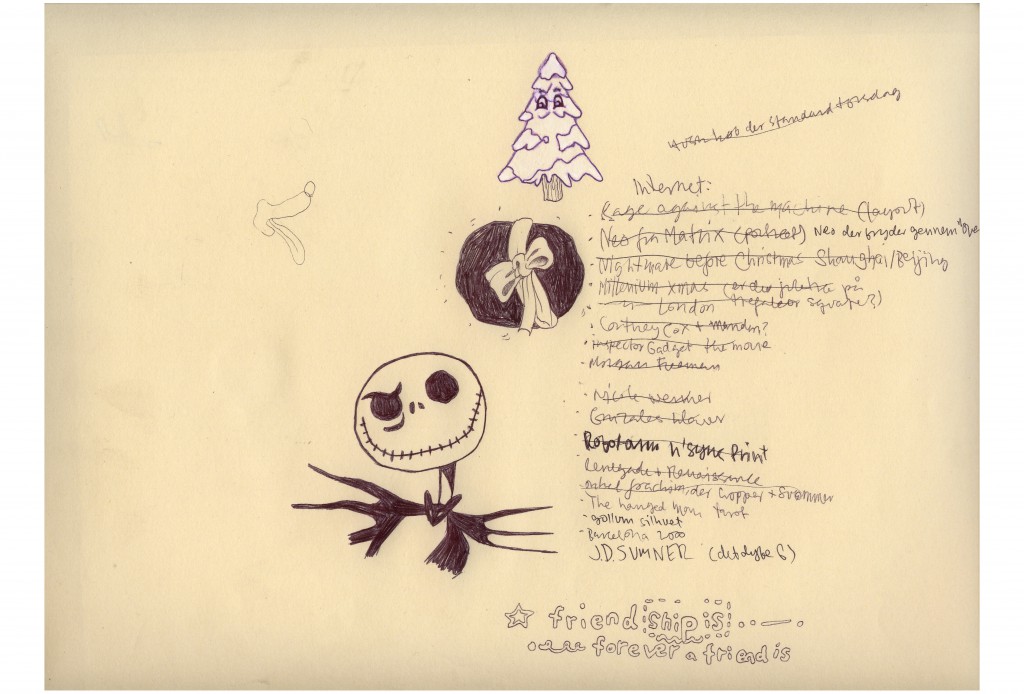 der standard torsdag
Internet:
· Rage against the machine (layout)
· Neo fra Matrix (portræt) Neo der bryder gennem
· Nightmare before Christmas Shanghai/Beijing
· Millenium xmas (er der på
London square?)
· Cortney Cox + manden?
· Inspector Gadget the movie
· Morgan Freeman
· Nicole
· Gonzales blower
· Robotarm N'sync Print
· Renegade + Renaissance
onkel Joachim, der Cropper + Svømmer
· The hanged man, tarot
· gollum silhuet
· Barcelona 2000
J.D. SUMNER (det dybe G)
friend ship is
forever a friend is